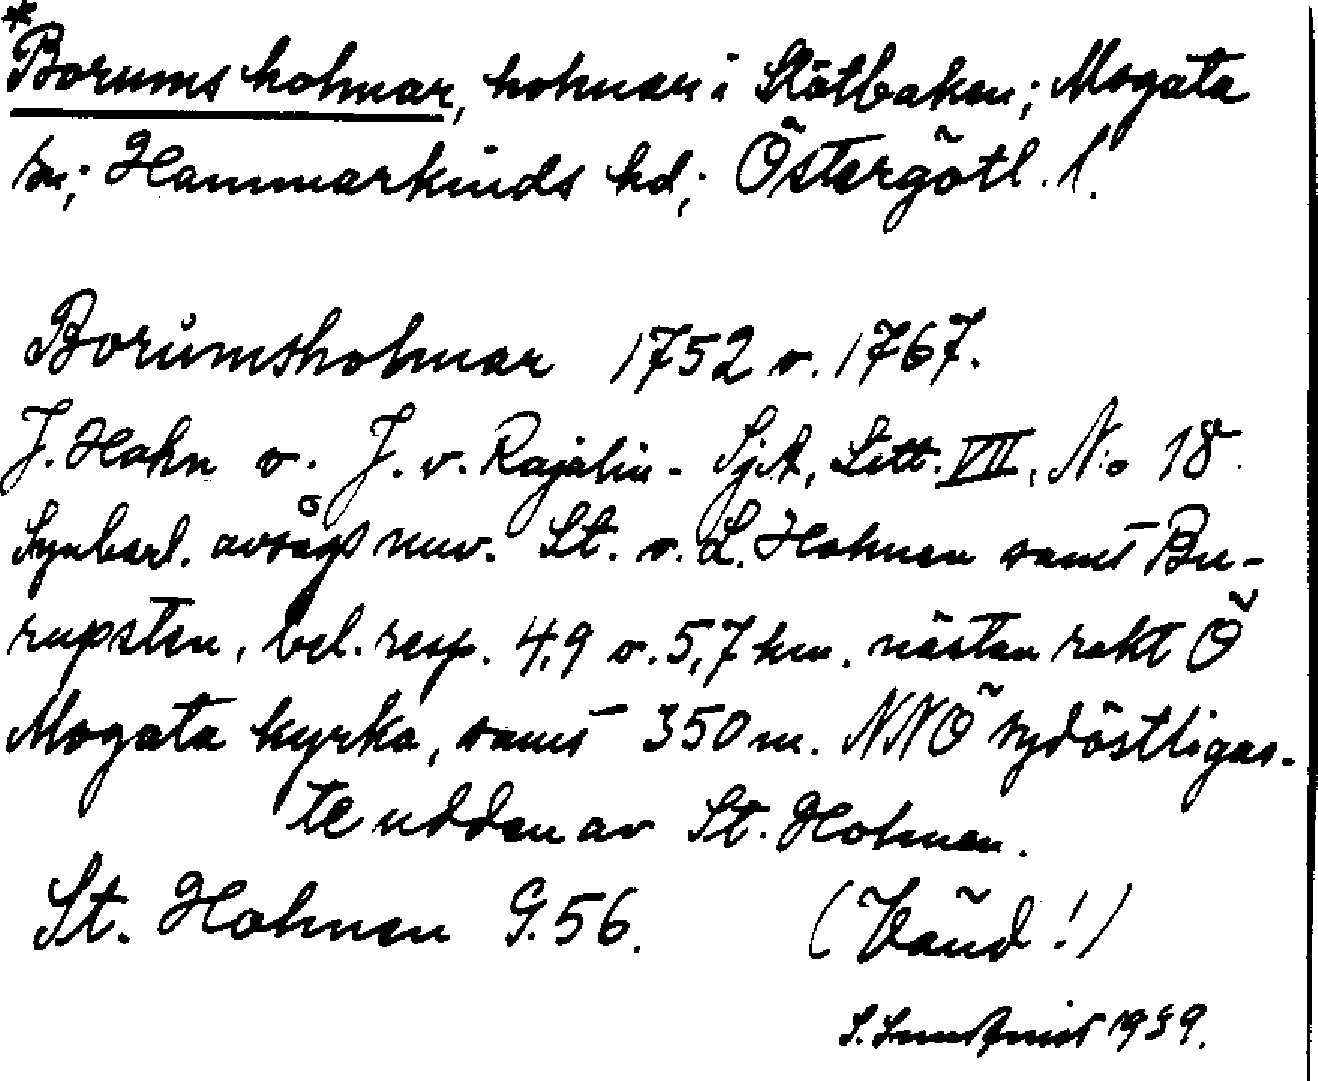 *Borums holmar, holmar i Slätbaken; Mogata
sn; Hammarkinds hd; Östergötl. l.
Borumsholmar 1752 o. 1767.
J. Hahn o. J. v. Rajalin - SjA, Litt. VII, No 18.
Synbarl. avsågs nuv. St. o. L. Holmen samt Bu-
rupsten, bel. resp. 4,9 o. 5,7 km. nästan rakt Ö
Mogata kyrka, samt 350 m. NNÖ sydöstligas-
te udden av St. Holmen.
St. Holmen G. 56. (Vänd!)
S. Lundqvist 1939.